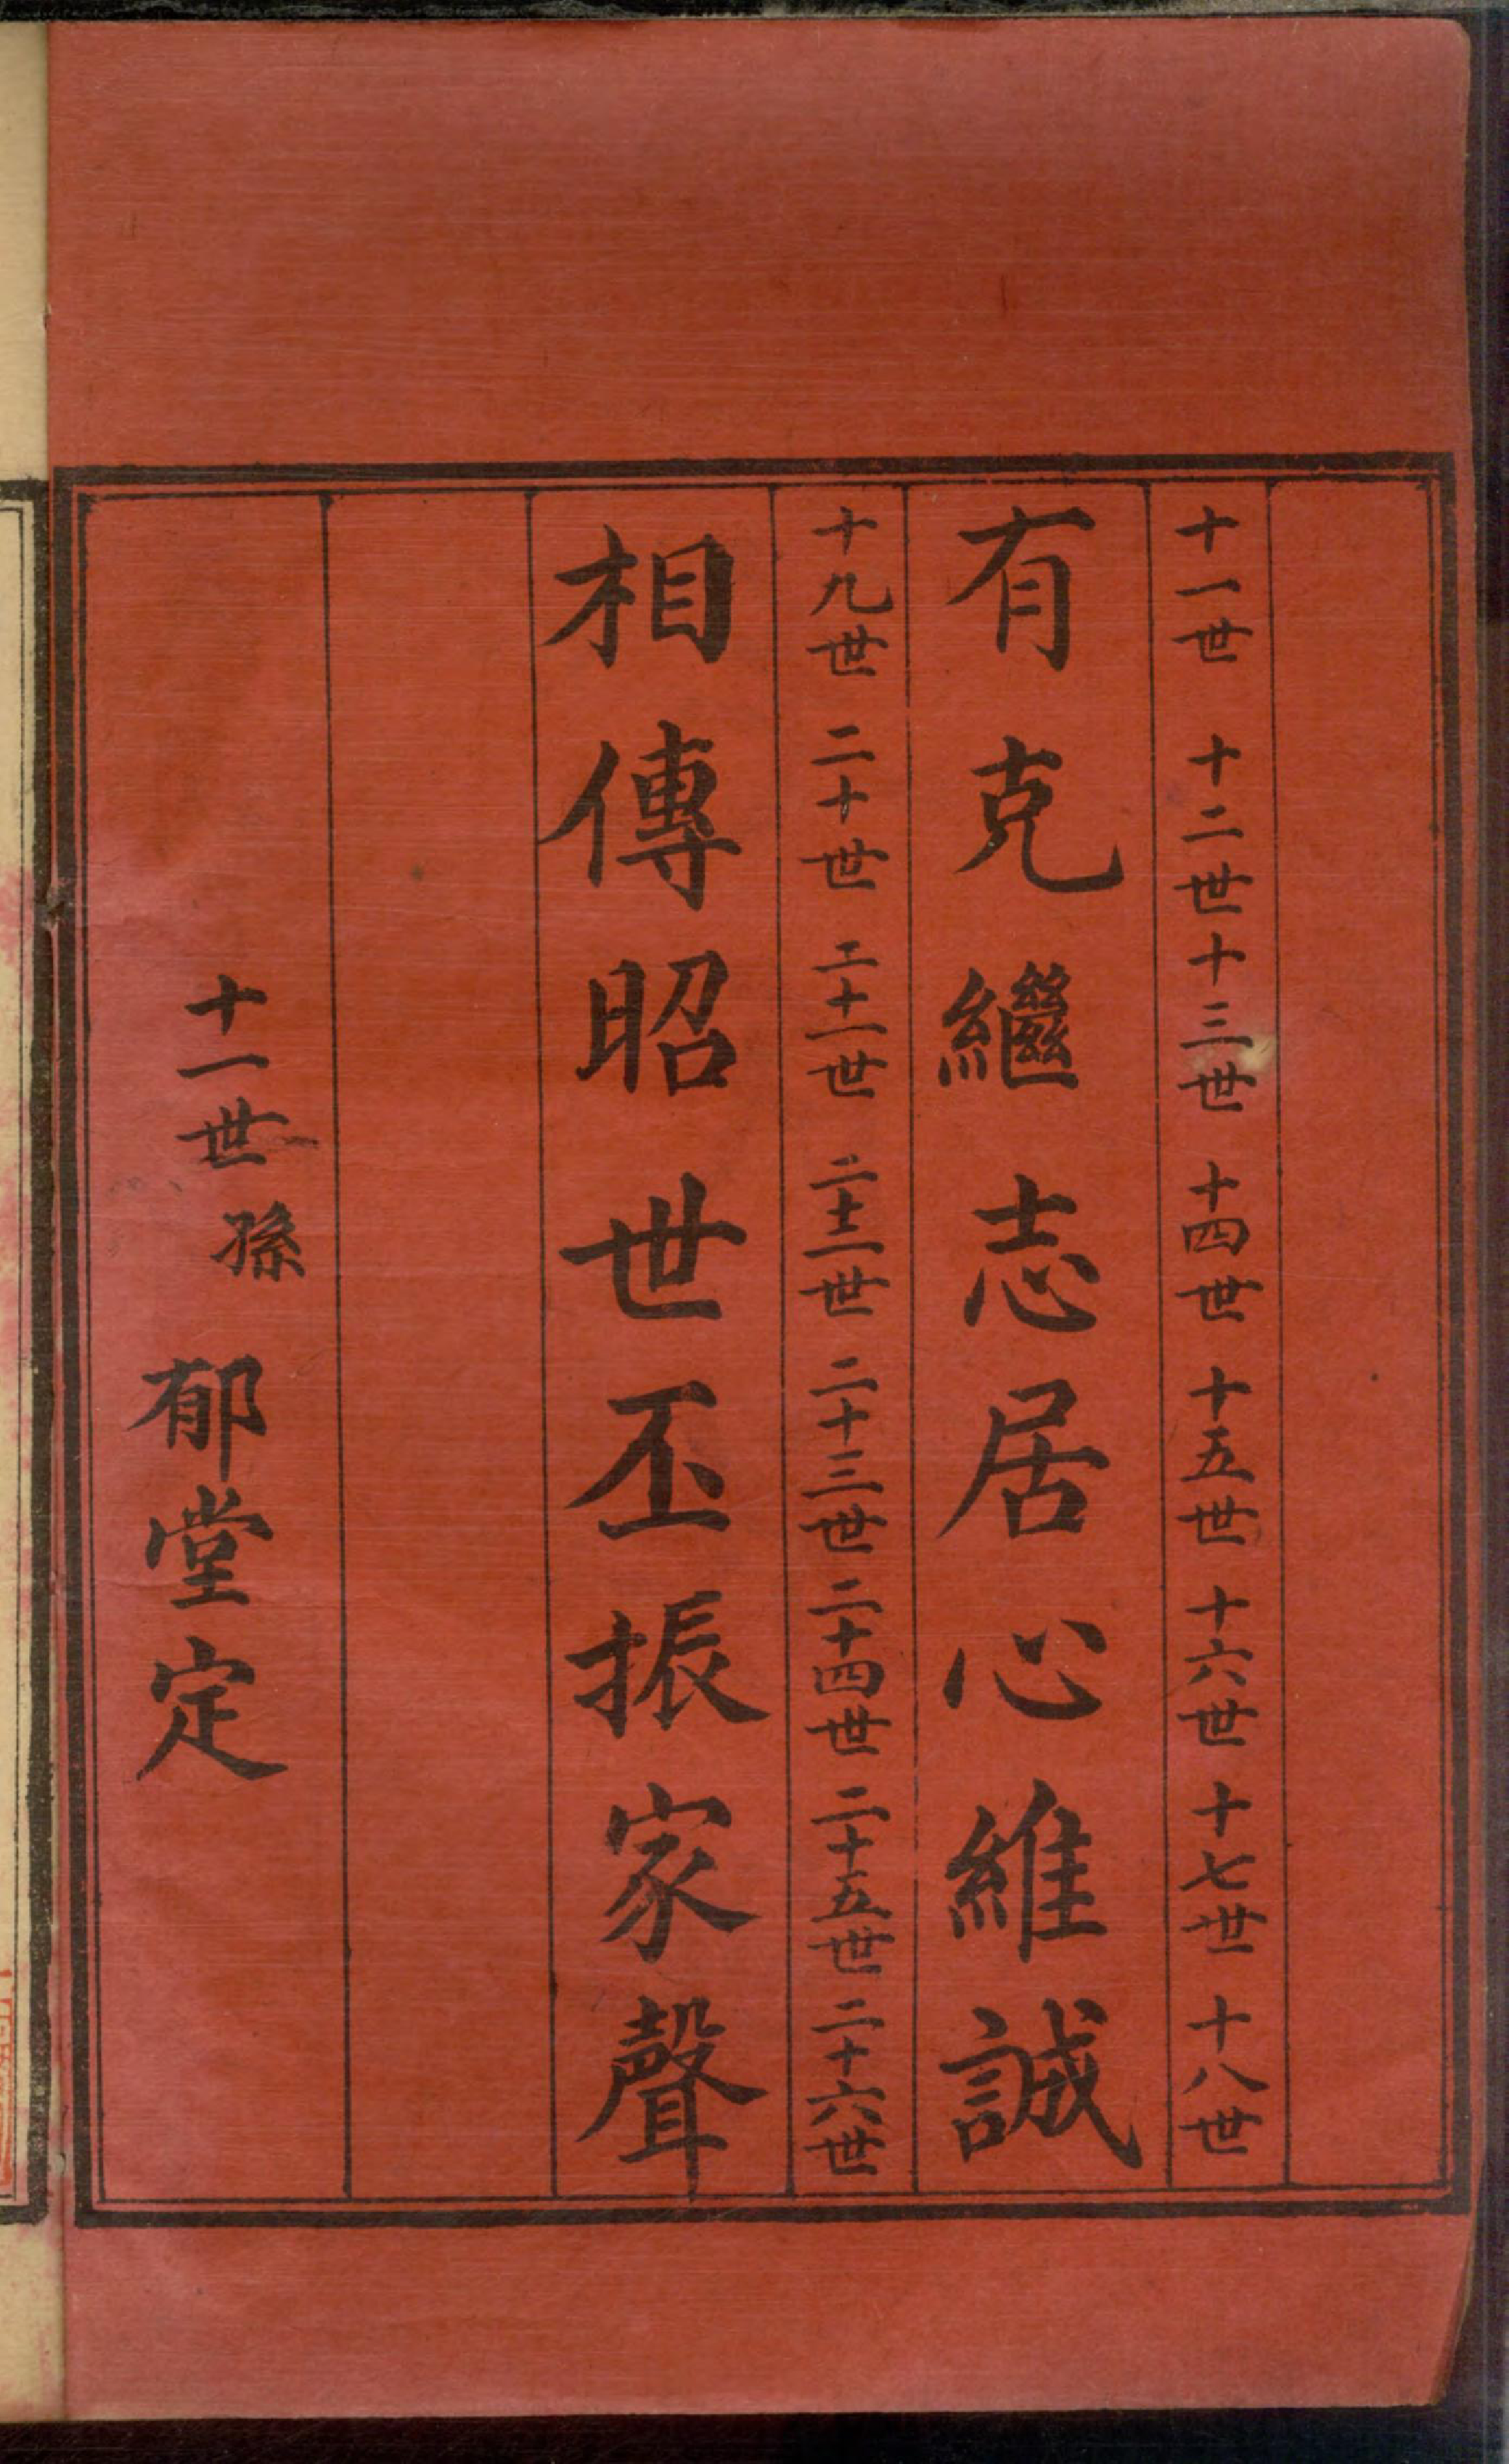 十一世 十二世 十三世 十四世 十五世 十六世 十七世 十八世
有克繼志居心維誠
十九世 二十世 二十一世 二十二世 二十三世 二十四世 二十五世 二十六世
相傳昭世丕振家聲
十一世孫 郁堂定